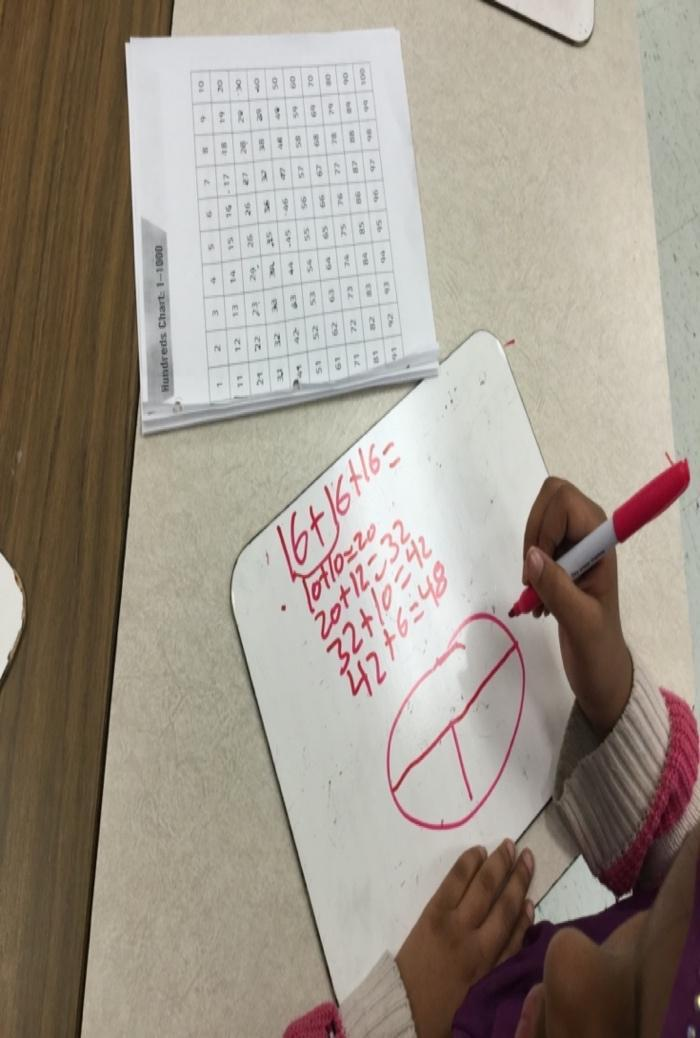 Hundreds Chart: 1-1000
1 2 3 4 5 6 7 8 9 10
11 12 13 14 15 16 17 18 19 20
21 22 23 24 25 26 27 28 29 30
31 32 33 34 35 36 37 38 39 40
41 42 43 44 45 46 47 48 49 50
51 52 53 54 55 56 57 58 59 60
61 62 63 64 65 66 67 68 69 70
71 72 73 74 75 76 77 78 79 80
81 82 83 84 85 86 87 88 89 90
91 92 93 94 95 96 97 98 99 100
16+16+16=
10+10=20
20+12=32
32+10=42
42+6=48